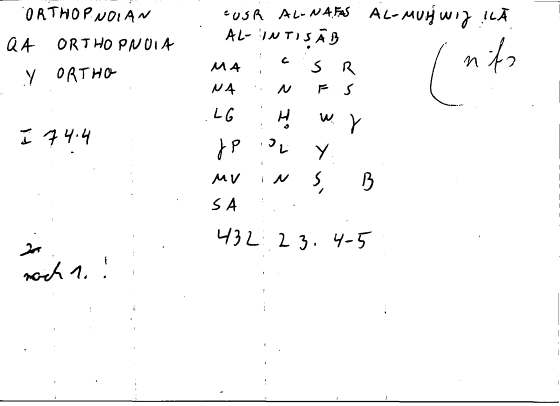 ORTHOPNOIAN
QA ORTHOPNOIA
Y ORTHO
I 74.4
noch 1. !
ʿUSR AL-NAFAS AL-MUḤWIJ ILĀ
AL-INTIṢĀB
MA ʿ S R
NA N F S
LG Ḥ W J
JP ʾL Y
MV N Ṣ B
SA
432 23. 4-5